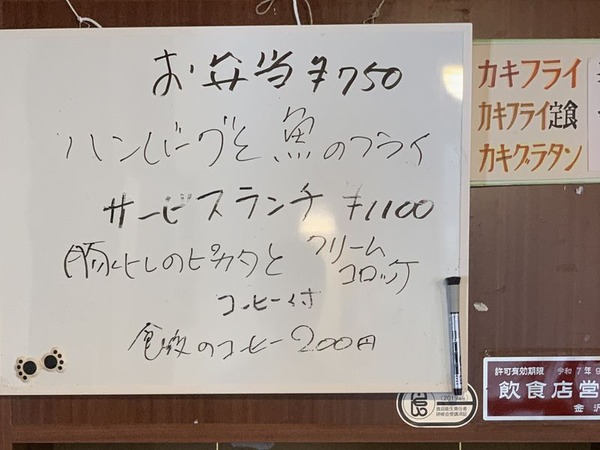 お弁当 ¥750
ハンバーグと魚のフライ
サービスランチ ¥1100
豚ヒレのピカタと クリームコロッケ
コーヒー付
食後のコーヒー 200円
カキフライ
カキフライ定食
カキグラタン
許可有効期限 令和7年9
飲食店営
金沢